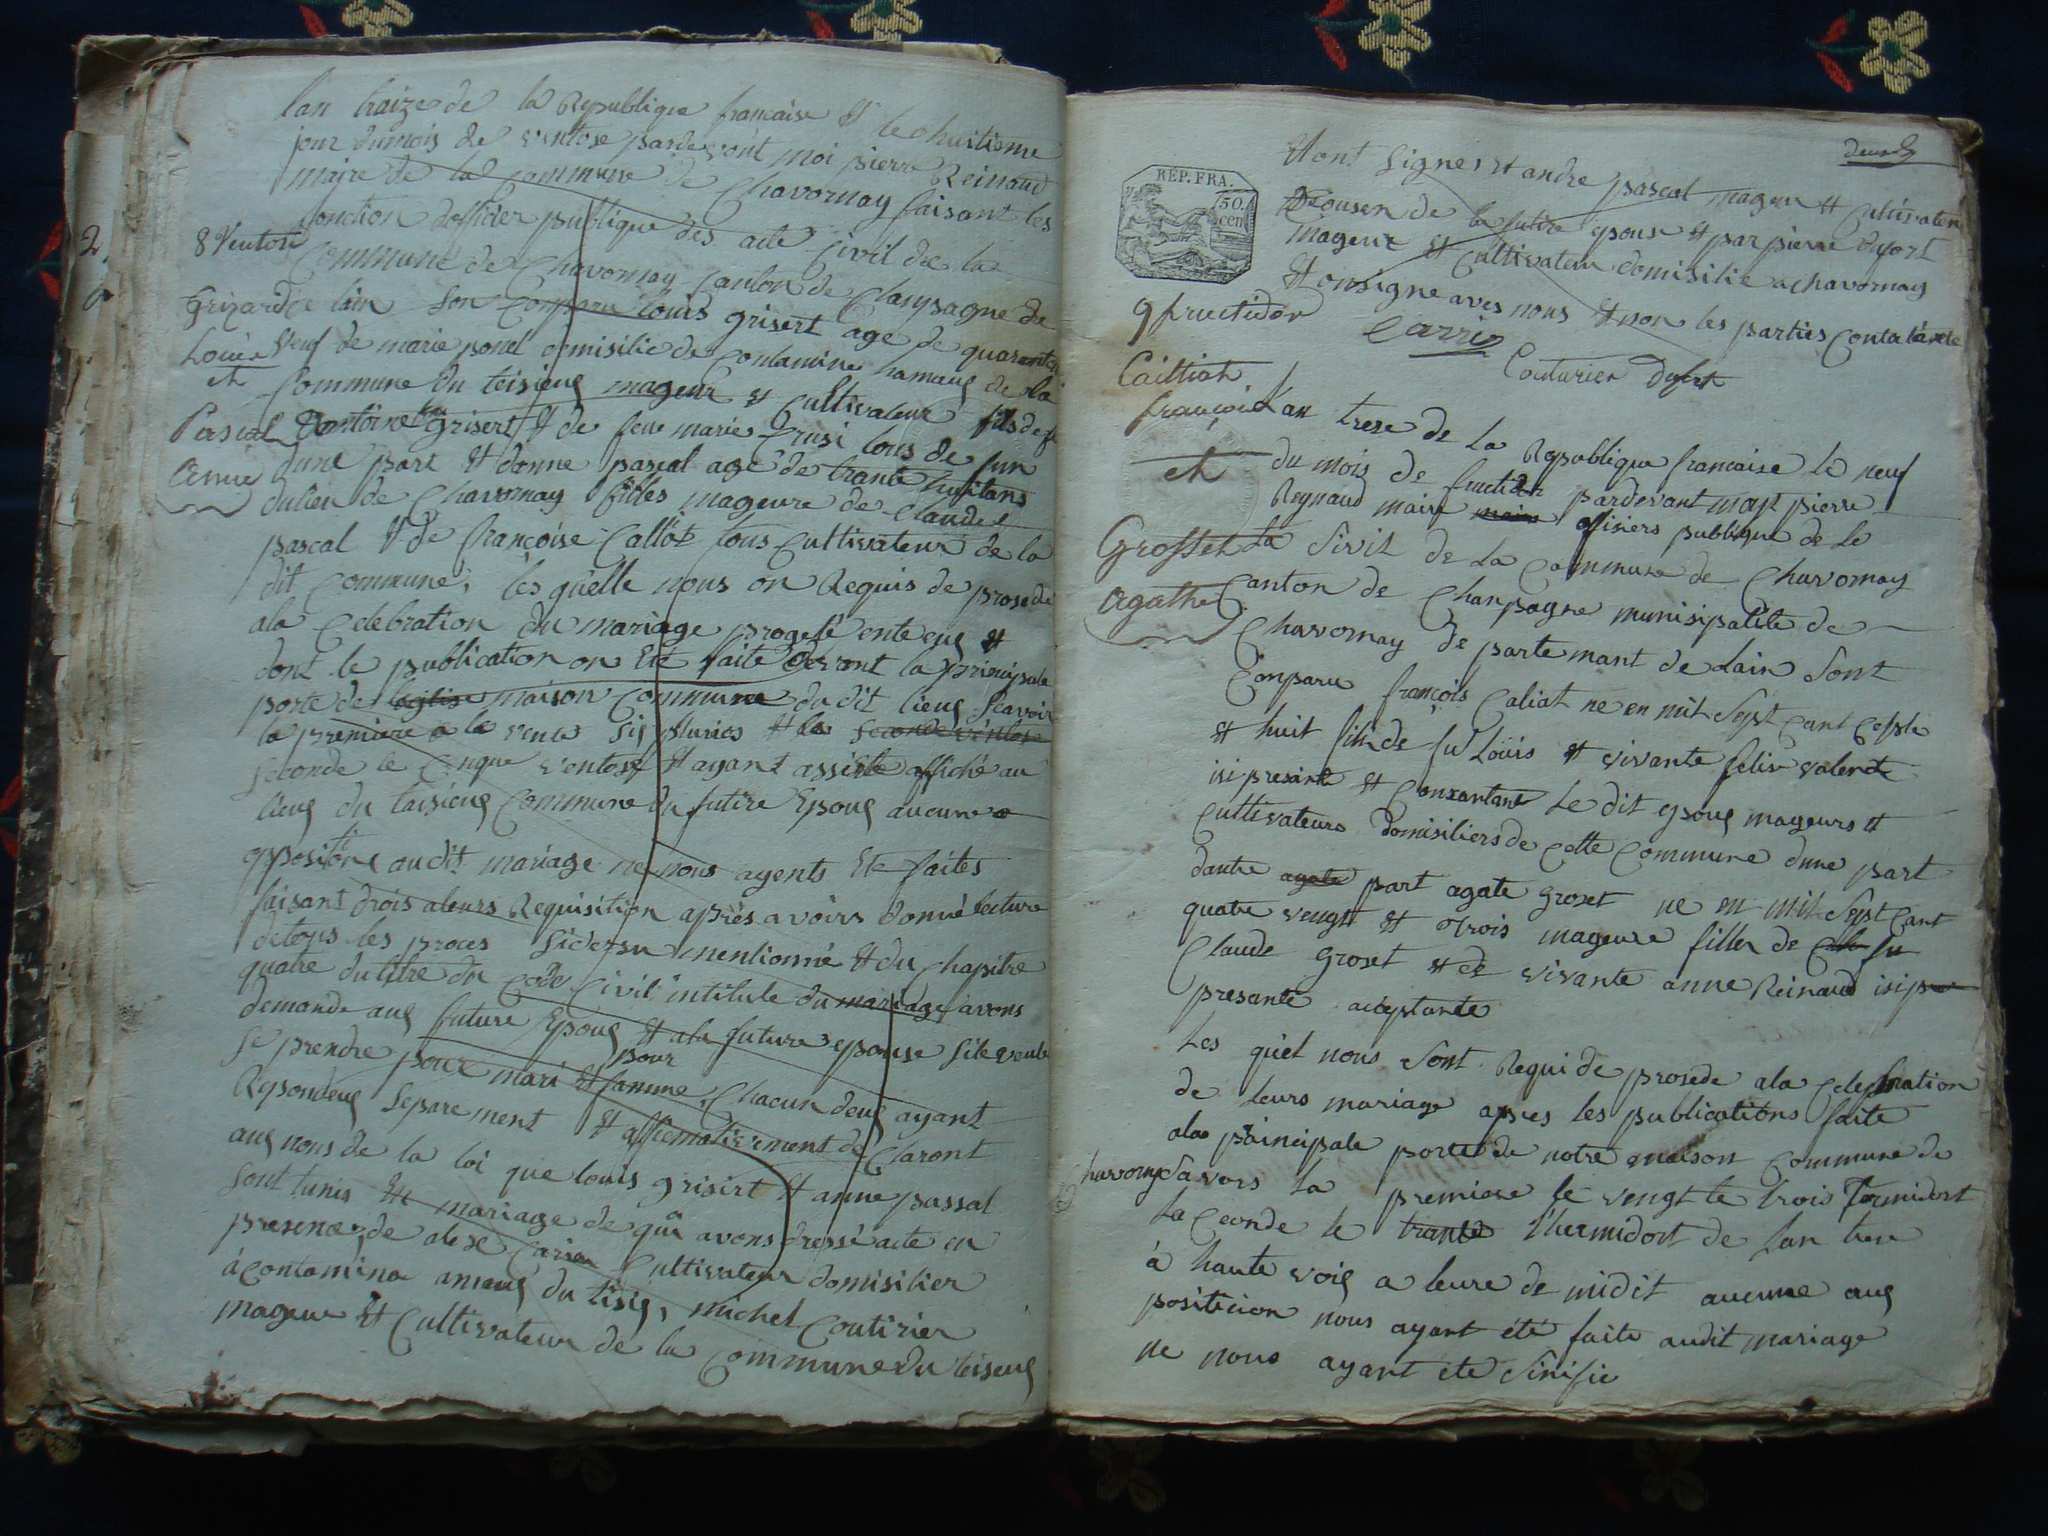 lan traize de la Republique francaise & le huitieme
jour dumois de ventose pardevont moi pierre Reinaud
maire de la commune de Chavornay faisant les
fonction dofficier publique des acte civil de la
8 Ventose
commune de Chavornay canton de Champagne de
Grizard
lain son comparu louis grisert age de quarente
Louis
veuf de marie ponel domisilie de contamine hamaux de la
et
commune du teisieux mageur et cultivateur fils de f
Pascal
antoine grisert & de feue marie tous de
Anne
dune part & danne pascal age de trante huit ans
dulieu de Chavornay filles mageure de claude
pascal & de françoise Callot tous cultivateur de la
dit commune, les quelle nous on Requis de prosede
ala Celebration du mariage progeté ente eux et
dont le publication on Eté faite devant la principale
porte de leglise maison commune du dit lieux scavoir
la premiere a la vente six pluvios & la seconde ventose
seconde le cinque ventose & ayant assisté affiché au
lieux du taisieux commune du futire Epoux aucune
oppositione audit mariage ne nous ayents Ete faites
faisant drois aleurs Requisition aprés avoirs donné lecture
detous les proces sidesu mentionné & du chapitre
quatre du titre du code civil intitule du mariage avons
demande aux future Epoux & ala future epouse sile veule
se prendre pour mari & pour famme, chacun deux ayant
Reponduy separement & affirmativement declaront
aux nons de la loi que louis grisirt & anne passal
sont unis En mariage de quoi avons dressé acte en
presence de alexe carier cultivateur domisilier
à contamina ameux du tisieu, michel coutirier
mageur & cultivateur de la commune du teiseux
deux
RÉP. FRA.
50.
cen
& ont signes & andre pascal mageur & cultivateur
Cousen de la futire epouse & par pierre dufort
mageur & cultivateur domisilie a chavornay
& onsigne aves nous & non les parties contratante
9 fructidor
carrier
Couturier dufort
Cailliat
françois
Lan treze de la Republique francaise le neuf
et
du mois de fructidor pardevant moy pierre
Reynaud maire maire offisiers publique de Le
Grosset
ta sivil de la commune de Chavornay
Agathe
canton de Chanpagne munisipalite de
Chavornay de partemant de Lain sont
Comparu françois Caliat ne en mil sept cant
et huit fils de fu Louis et vivante
isi presante et consantant Le dit epoux mageurs et
cultivateurs domisiliers de cette commune dune part
dautre agate part agate groset ne en mil sept cant
quatre vengt et trois mageure filler de Cla fu
Claude groset et de vivante anne Reinaud isi pre
presante aceptante
Les quel nous sont Requi de prosede ala celebration
de leurs mariage apres les publications faite
ala principale porte de notre maison commune de
Chavornay savors la premiere le vengt te trois Termidort
La ceonde le trante thermidort de Lan treze
à haute voix a leure de midit aucune aux
position nous ayant été faite audit mariage
ne nous ayant ete sinifie